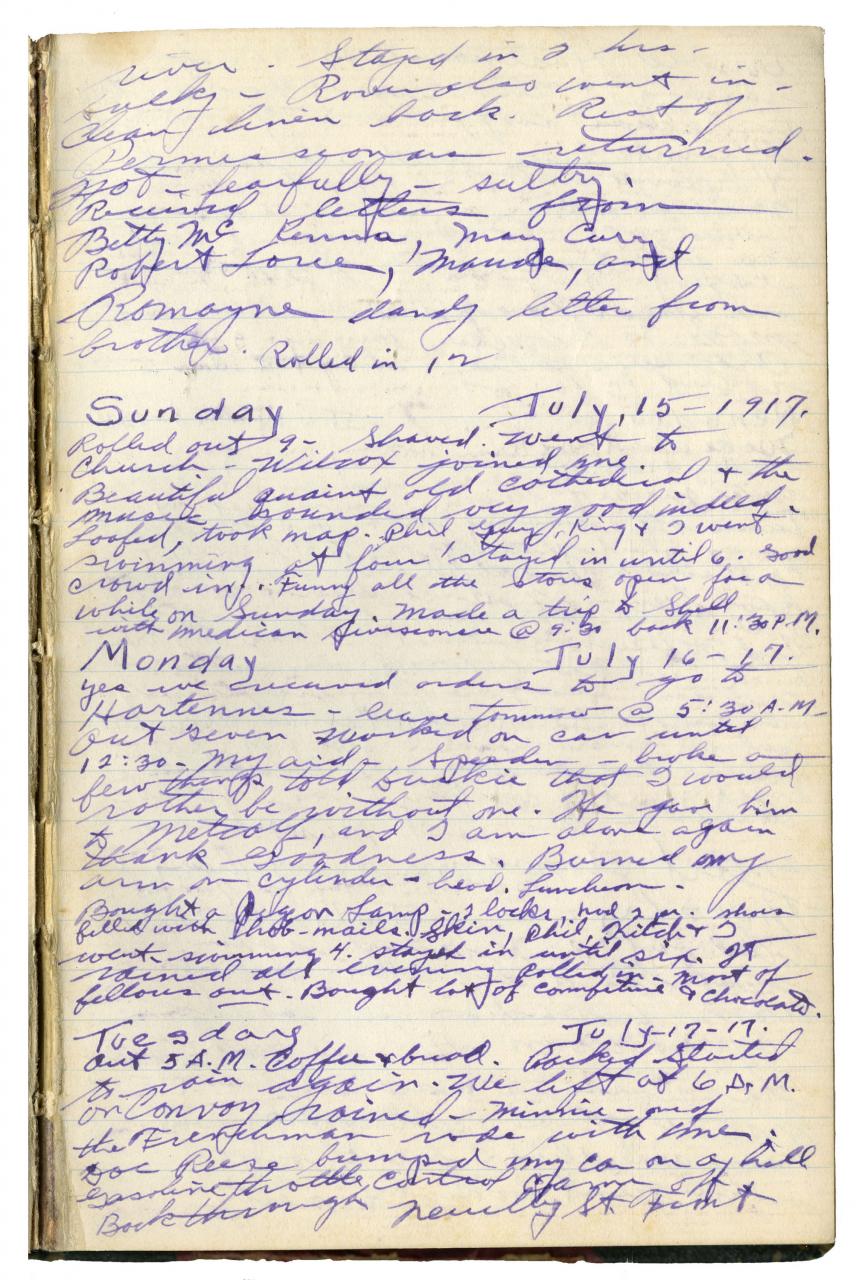 river. Stayed in 2 hrs.
bulky - Rowe also went in -
Clean linen back. Rest of
Permissionaires returned.
Hot - fearfully - sultry
Received letters from
Betty Mc Kenna, May Curry
Robert Loree, Maude, and
Romayne dandy letter from
brother. Rolled in 12
Sunday July, 15-1917.
Rolled out 9- Shaved. Went to
Church - Wilcox joined me.
Beautiful quaint old cathedral & the
music sounded very good indeed.
Loafed, took map. Phil Gray, King & I went
swimming at four stayed in until 6. Good
crowd in. Funny all the stores open for a
while on Sunday. Made a trip to Shell
with Medican Divisionaire @ 9:30 back 11:30 P.M.
Monday July 16-17.
Yes we received orders to go to
Hartennes - leave tomorrow @ 5:30 A.M-
Out seven worked on car until
12:30 - My aid - Speeder - broke a
few things told buckie that I would
rather be without one. He gave him
to Metcalf, and I am alone again
thank Goodness. Burned my
arm on cylinder - head. Luncheon -
Bought a Pigeon Lamp - 2 locks, had 2 pr. shoes
filled with hob-nails. Skin, Phil, Kitch & I
went swimming 4. stayed in until six. It
rained all evening rolled in - most of
fellows out. Bought lot of confiture & Chocolate.
Tuesday July-17-17.
Out 5 A.M. Coffee & bread. Packed Started
to rain again. We left at 6 A.M.
on Convoy rained - Minnie - one of
the Frenchman rode with me.
Doc Reese bumped my car on a hill
Gasoline throttle control came off
Back through Neuilly St. Front